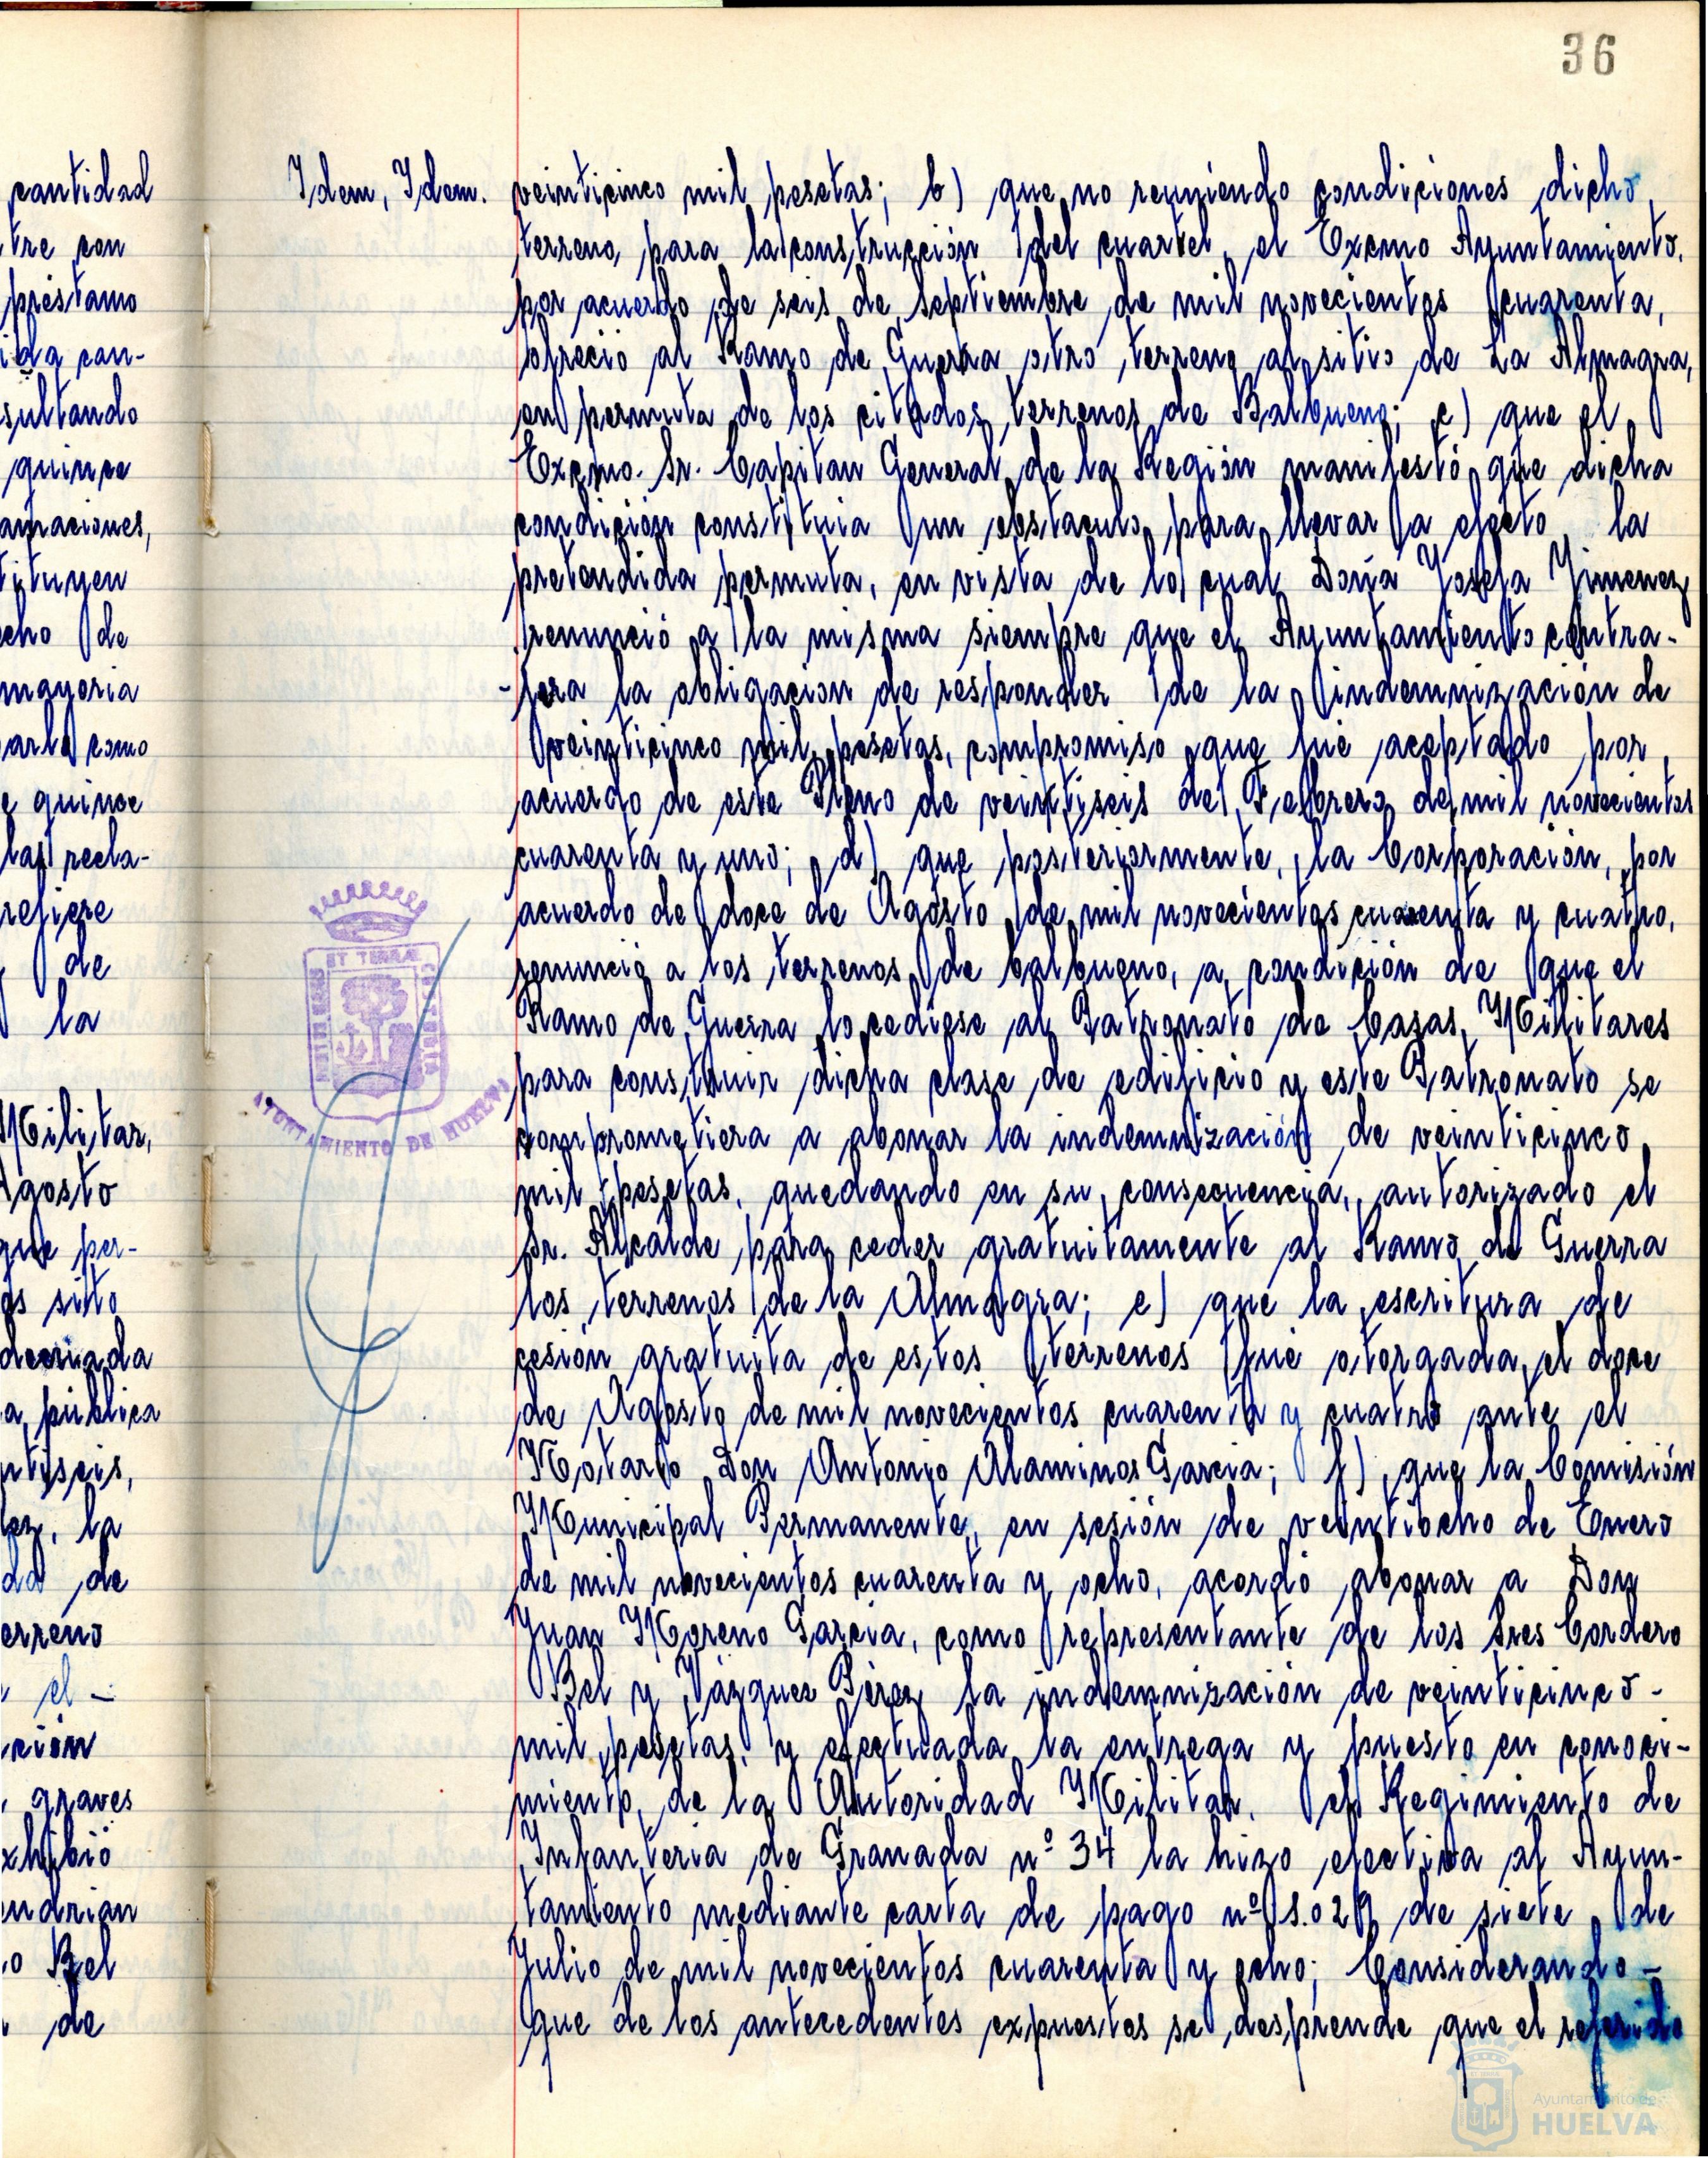 36
cantidad
tre con
préstamo
ida can-
sultando
quince
amaciones,
tituyen
echo de
mayoria
arla como
e quince
las recla-
refiere
de
la
Militar,
Agosto
que per-
os sito
decriada
a pública
ntiseis,
ez, la
da de
erreno
el -
cion
graves
xhibió
endrian
o Bel
de
Idem, Idem.
veinticinco mil pesetas; b) que no reuniendo condiciones dicho
terreno, para la construcción del cuartel, el Excmo Ayuntamiento,
por acuerdo de seis de Septiembre de mil novecientos cuarenta,
ofreció al Ramo de Guerra otro terreno al sitio de La Almagra,
en permuta de los citados terrenos de Balbueno; c) que el
Excmo. Sr. Capitan General de la Región manifestó que dicha
condición constituia un obstaculo para llevar a efecto la
pretendida permuta, en vista de lo cual Doña Josefa Jimenez
renunció a la misma siempre que el Ayuntamiento contra-
-jera la obligacion de responder de la indemnización de
veinticinco mil pesetas, compromiso que fué aceptado por
acuerdo de este Pleno de veintiseis de Febrero de mil novecientos
cuarenta y uno; d) que posteriormente, la Corporación, por
acuerdo de doce de Agosto de mil novecientos cuarenta y cuatro,
renunció a los terrenos de balbueno, a condición de que el
Ramo de Guerra lo cediese al Patronato de Casas Militares
para construir dicha clase de edificio y este Patronato se
comprometiera a abonar la indemnización de veinticinco
mil pesetas, quedando en su consecuencia, autorizado el
Sr. Alcalde para ceder gratuitamente al Ramo de Guerra
los terrenos de la Almagra; e) que la escritura de
cesión gratuita de estos terrenos fué otorgada el doce
de Agosto de mil novecientos cuarenta y cuatro ante el
Notario Don Antonio Alaminos Garcia; f) que la Comisión
Municipal Permanente, en sesión de veintiocho de Enero
de mil novecientos cuarenta y ocho, acordó abonar a Don
Juan Moreno Garcia, como representante de los Sres Cordero
Bel y Vázquez Pérez la indemnización de veinticinco-
mil pesetas, y efectuada la entrega y puesto en conoci-
miento de la Autoridad Militar, el Regimiento de
Infanteria de Granada nº 34 la hizo efectiva al Ayun-
tamiento mediante carta de pago nº de siete de
Julio de mil novecientos cuarenta y ocho; Considerando-
que de los antecedentes expuestos se desprende que el referido
ET TERRAE
AYUNTAMIENTO DE HUELVA
Ayuntamiento de
HUELVA